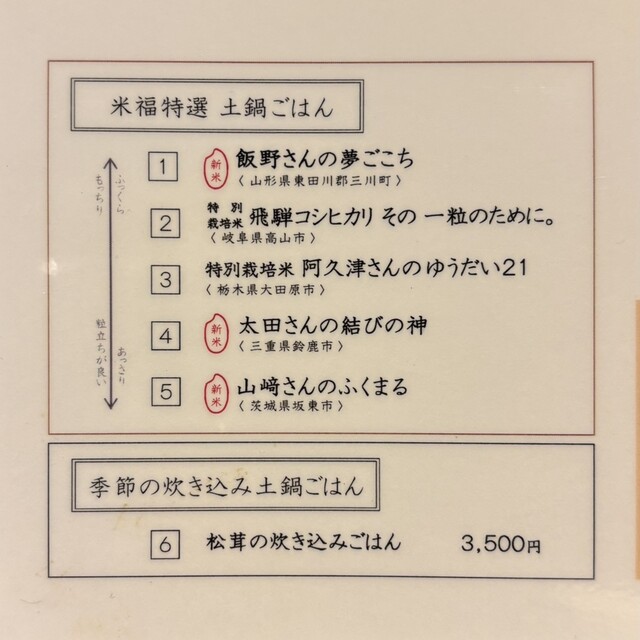 米福特選 土鍋ごはん
ふっくら
もっちり
粒立ちが良い
あっさり
1 新米 飯野さんの夢ごこち
〈 山形県東田川郡三川町 〉
2 特別栽培米 飛騨コシヒカリ その 一粒のために。
〈 岐阜県高山市 〉
3 特別栽培米 阿久津さんのゆうだい21
〈 栃木県大田原市 〉
4 新米 太田さんの結びの神
〈 三重県鈴鹿市 〉
5 新米 山﨑さんのふくまる
〈 茨城県坂東市 〉
季節の炊き込み土鍋ごはん
6 松茸の炊き込みごはん 3,500円